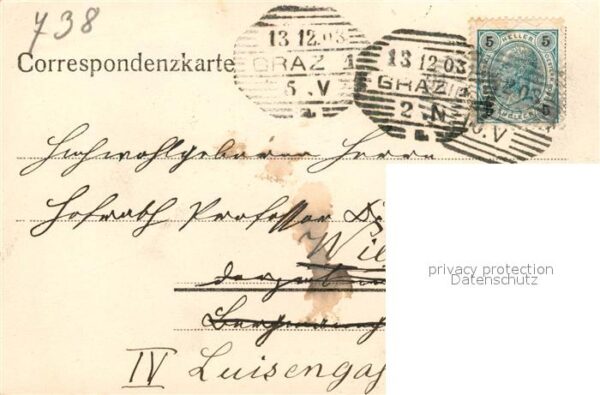 738
13 12.03
GRAZ 1
5.V
a
13 12 03
GRAZ 1
2.N
5 HELLER 5
5 5
Correspondenzkarte
Hochwohlgeboren Herrn
Hofrath Professor
Wil
derzeit
IV Luisengas
privacy protection
Datenschutz